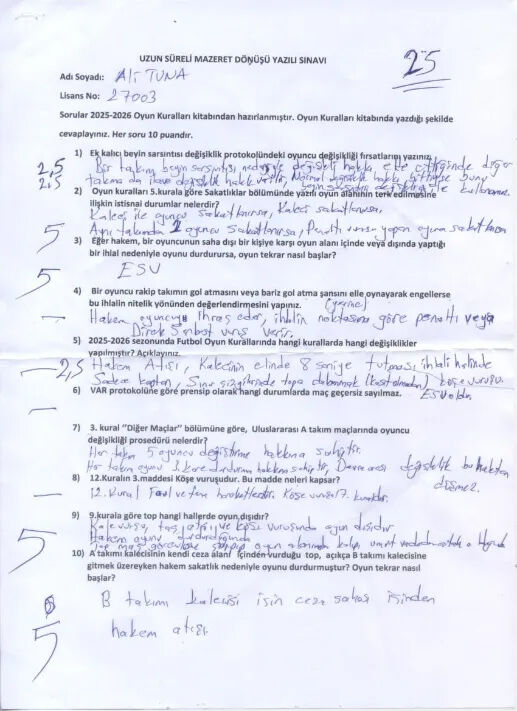 UZUN SÜRELİ MAZERET DÖNÜŞÜ YAZILI SINAVI
25
Adı Soyadı: Ali TUNA
Lisans No: 27003
Sorular 2025-2026 Oyun Kuralları kitabından hazırlanmıştır. Oyun Kuralları kitabında yazdığı şekilde
cevaplayınız. Her soru 10 puandır.
1) Ek kalıcı beyin sarsıntısı değişiklik protokolündeki oyuncu değişikliği fırsatlarını yazınız.
2,5 Bir takım beyin sarsıntısı nedeniyle değişiklik hakkı elde ettiğinde diğer
2,5 takıma da ilave değişiklik hakkı verilir. Normal değişiklik hakkı bittiyse bunu
beyin sarsıntısı değişikliği ile kullanamaz.
2) Oyun kuralları 5.kurala göre Sakatlıklar bölümünde yazılı oyun alanının terk edilmesine
ilişkin istisnai durumlar nelerdir?
Kaleci ile oyuncu sakatlanırsa, Kaleci sakatlanırsa.
5 Aynı takımda 2 oyuncu sakatlanırsa, Penaltı vuruşu yapan oyuncu sakatlanırsa
3) Eğer hakem, bir oyuncunun saha dışı bir kişiye karşı oyun alanı içinde veya dışında yaptığı
bir ihlal nedeniyle oyunu durdurursa, oyun tekrar nasıl başlar?
5 ESV
4) Bir oyuncu rakip takımın gol atmasını veya bariz gol atma şansını elle oynayarak engellerse
bu ihlalin nitelik yönünden değerlendirmesini yapınız.
Hakem oyuncuyu ihraç eder, ihlalin noktasına göre penaltı veya
Direk Serbest vuruş verir.
5) 2025-2026 sezonunda Futbol Oyun Kurallarında hangi kurallarda hangi değişiklikler
yapılmıştır? Açıklayınız.
2,5 Hakem Atışı, Kalecinin elinde 8 saniye tutması ihlali halinde
Sadece kaptan, köşe vuruşu.
6) VAR protokolüne göre prensip olarak hangi durumlarda maç geçersiz sayılmaz.
7) 3. kural ''Diğer Maçlar'' bölümüne göre, Uluslararası A takım maçlarında oyuncu
değişikliği prosedürü nelerdir?
Her takım 5 oyuncu değiştirme hakkına sahiptir.
Her takım oyunu 3 kere durdurma hakkına sahiptir, Devre arası değişiklik bu haktan
düşmez.
8) 12.Kuralın 3.maddesi Köşe vuruşudur. Bu madde neleri kapsar?
12. Kural Faul ve fena hareketlerdir. Köşe vuruşu 17. kuraldır.
9) 9.kurala göre top hangi hallerde oyun dışıdır?
Kale vuruşu, taç atışı ve köşe vuruşunda oyun dışıdır
Hakem oyunu durdurduğunda
5
10) A takımı kalecisinin kendi ceza alanı içinden vurduğu top, açıkça B takımı kalecisine
gitmek üzereyken hakem sakatlık nedeniyle oyunu durdurmuştur? Oyun tekrar nasıl
başlar?
B takımı kalecisi için ceza sahası içinden
5 hakem atışı.